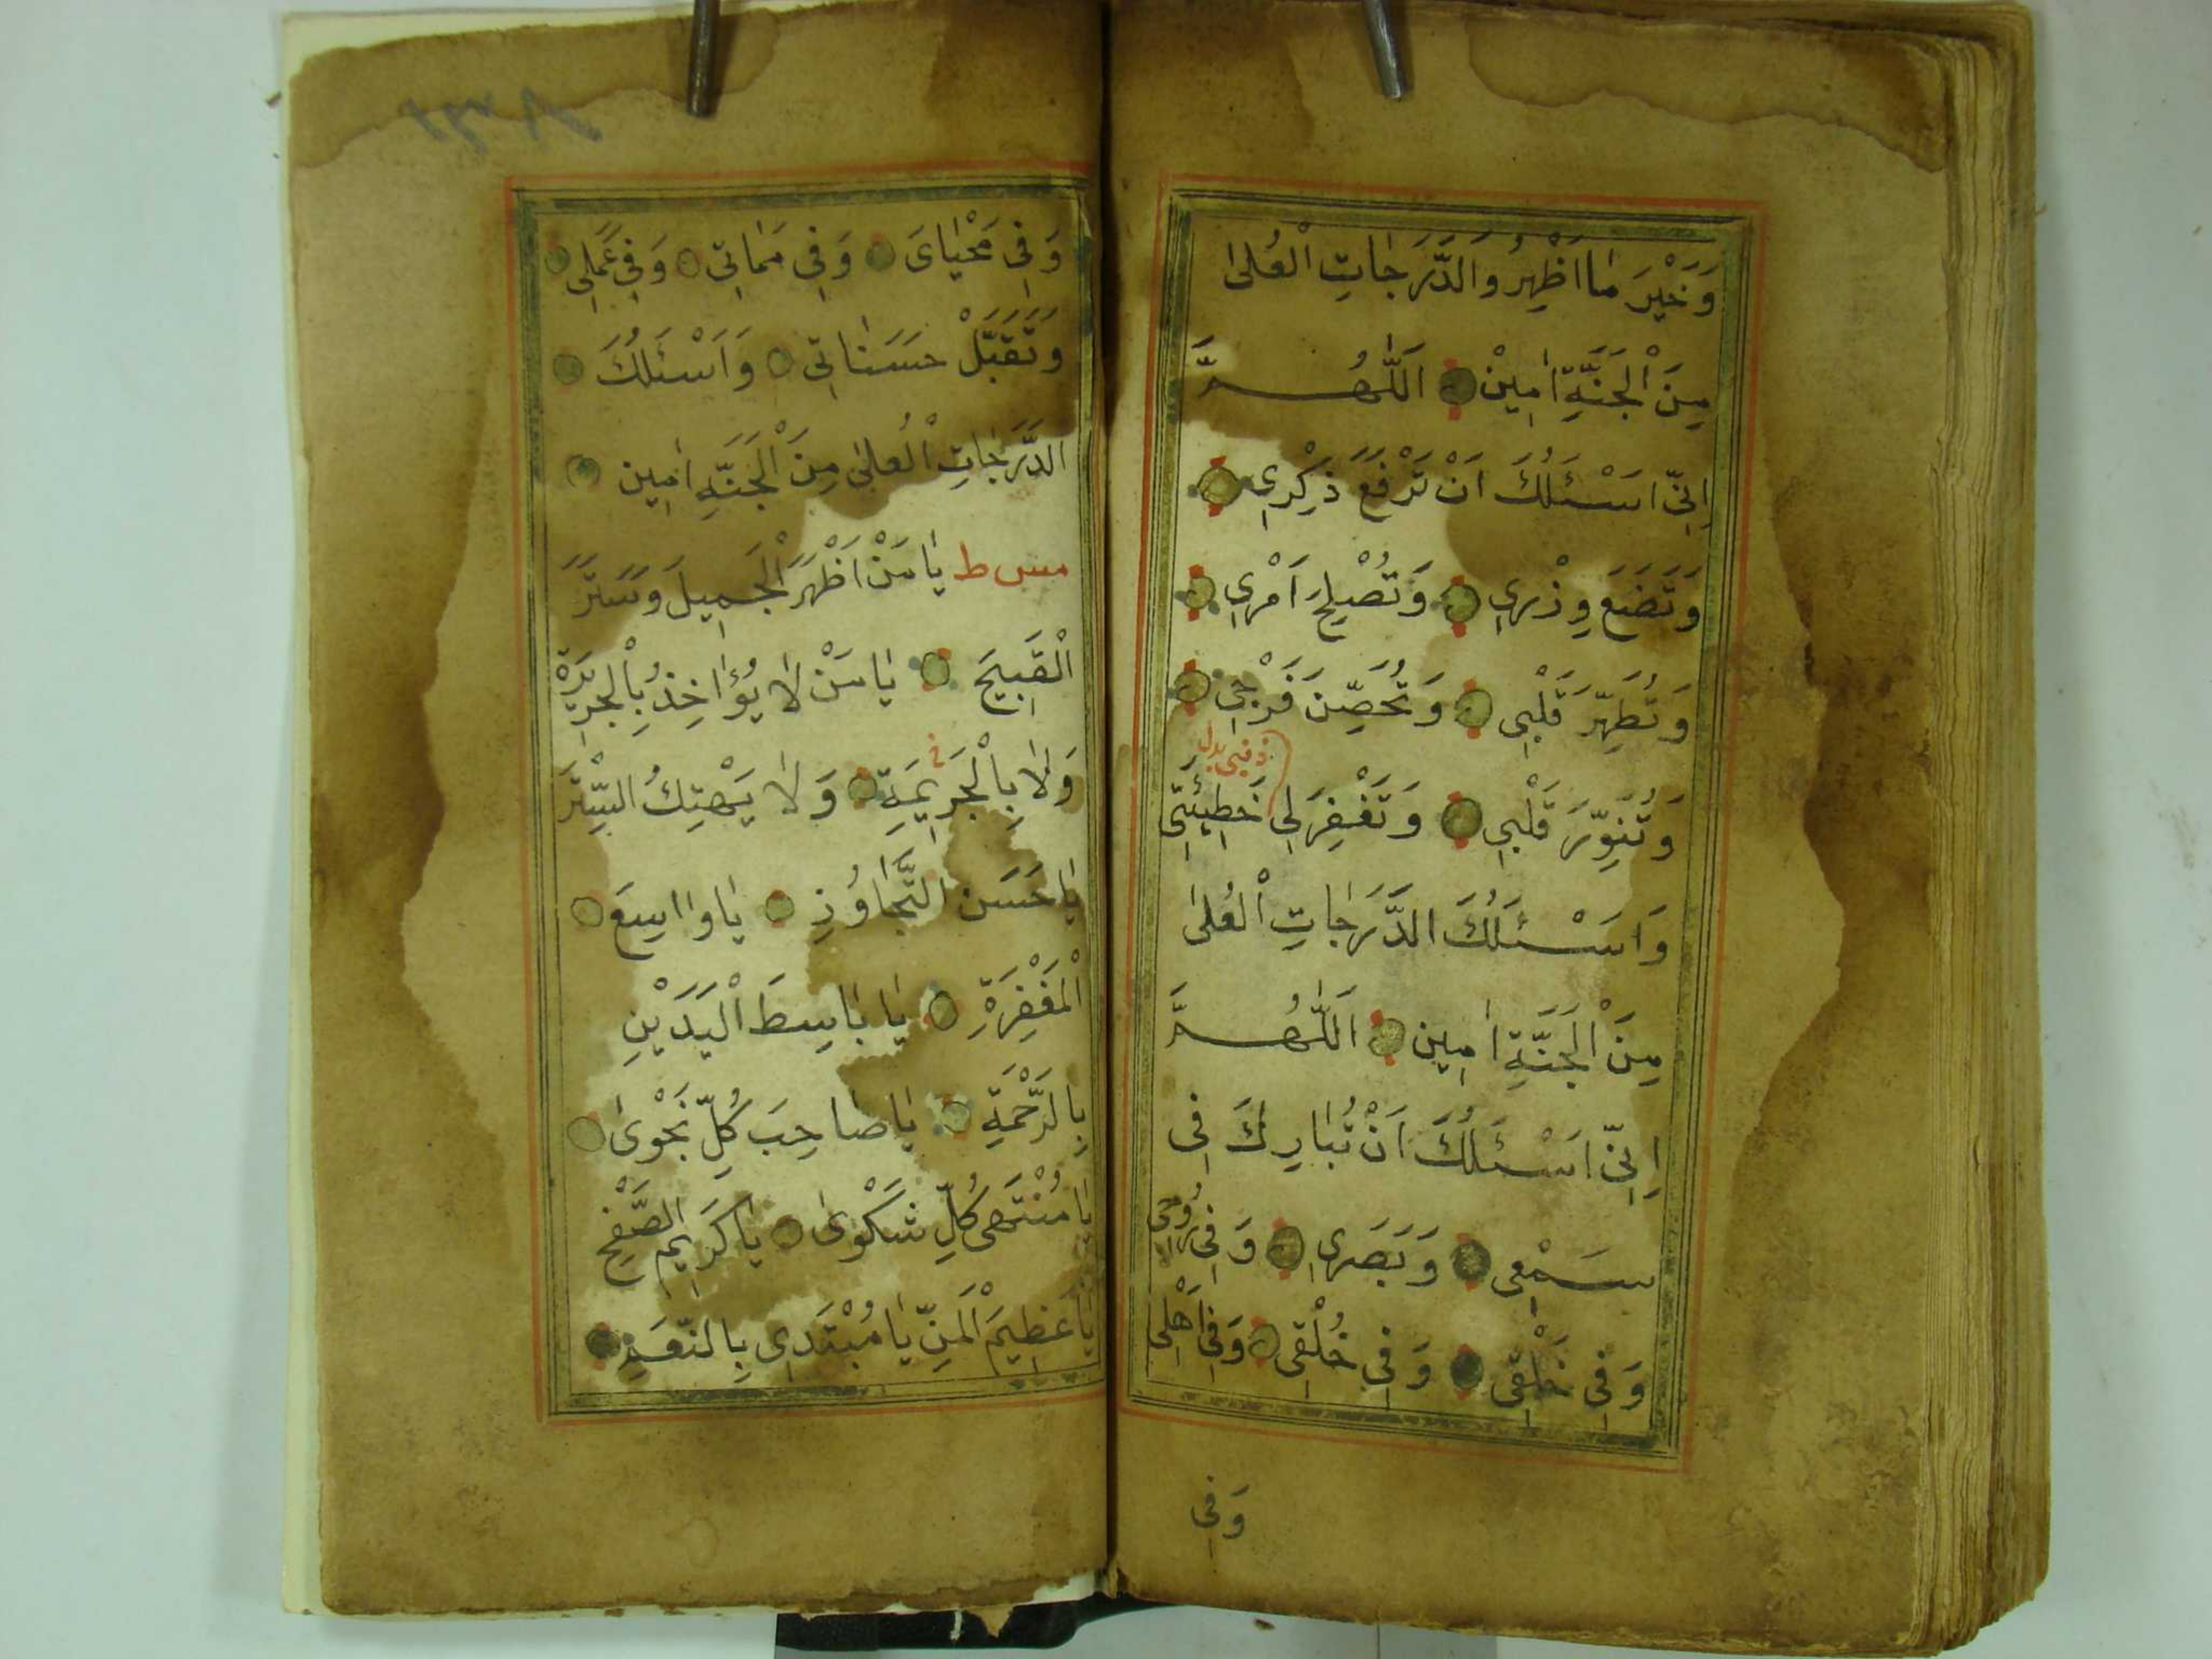 وَخَيْرَ مَا اَظْهِرُ وَالدَّرَجَاتِ الْعُلىٰ
مِنَ الْجَنَّةِ اٰمِيْنْ اَللّٰهُمَّ
اِنِّى اَسْئَلُكَ اَنْ تَرْفَعَ ذِكْرِى
وَتَضَعَ وِزْرِى وَتُصْلِحَ اَمْرِى
وَتُطَهِّرَ قَلْبِى وَتُحَصِّنَ فَرْجِى
ذنبى بدل
وَتُنَوِّرَ قَلْبِى وَتَغْفِرَ لِى خَطِيْئَتِى
وَاَسْئَلُكَ الدَّرَجَاتِ الْعُلىٰ
مِنَ الْجَنَّةِ اٰمِين اَللّٰهُمَّ
اِنِّى اَسْئَلُكَ اَنْ تُبَارِكَ فِى
سَمْعِى وَبَصَرِى وَفِى رُوْحِى
وَفِى خَلْقِى وَفِى خُلْقِى وَفِى اَهْلِى
وَفِى
وَفِى مَحْيَاىَ وَفِى مَمَاتِى وَفِى عَمَلِى
وَتَقَبَّلْ حَسَنَاتِى وَاَسْئَلُكَ
الدَّرَجَاتِ الْعُلىٰ مِنَ الْجَنَّةِ اٰمِين
مس ط يَا مَنْ اَظْهَرَ الْجَمِيلَ وَسَتَرَ
الْقَبِيحَ يَا مَنْ لَا يُؤَاخِذُ بِالْجَرِيْرَةِ
وَلَا بِالْجَرِيمَةِ وَلَا يَهْتِكُ السِّتْرَ
يَا حَسَنَ التَّجَاوُزِ يَا وَاسِعَ
الْمَغْفِرَةِ يَا بَاسِطَ الْيَدَيْنِ
بِالرَّحْمَةِ يَا صَاحِبَ كُلِّ نَجْوىٰ
يَا مُنْتَهَى كُلِّ شَكْوىٰ يَا كَرِيمَ الصَّفْحِ
يَا عَظِيمَ الْمَنِّ يَا مُبْتَدِى بِالنِّعَمِ